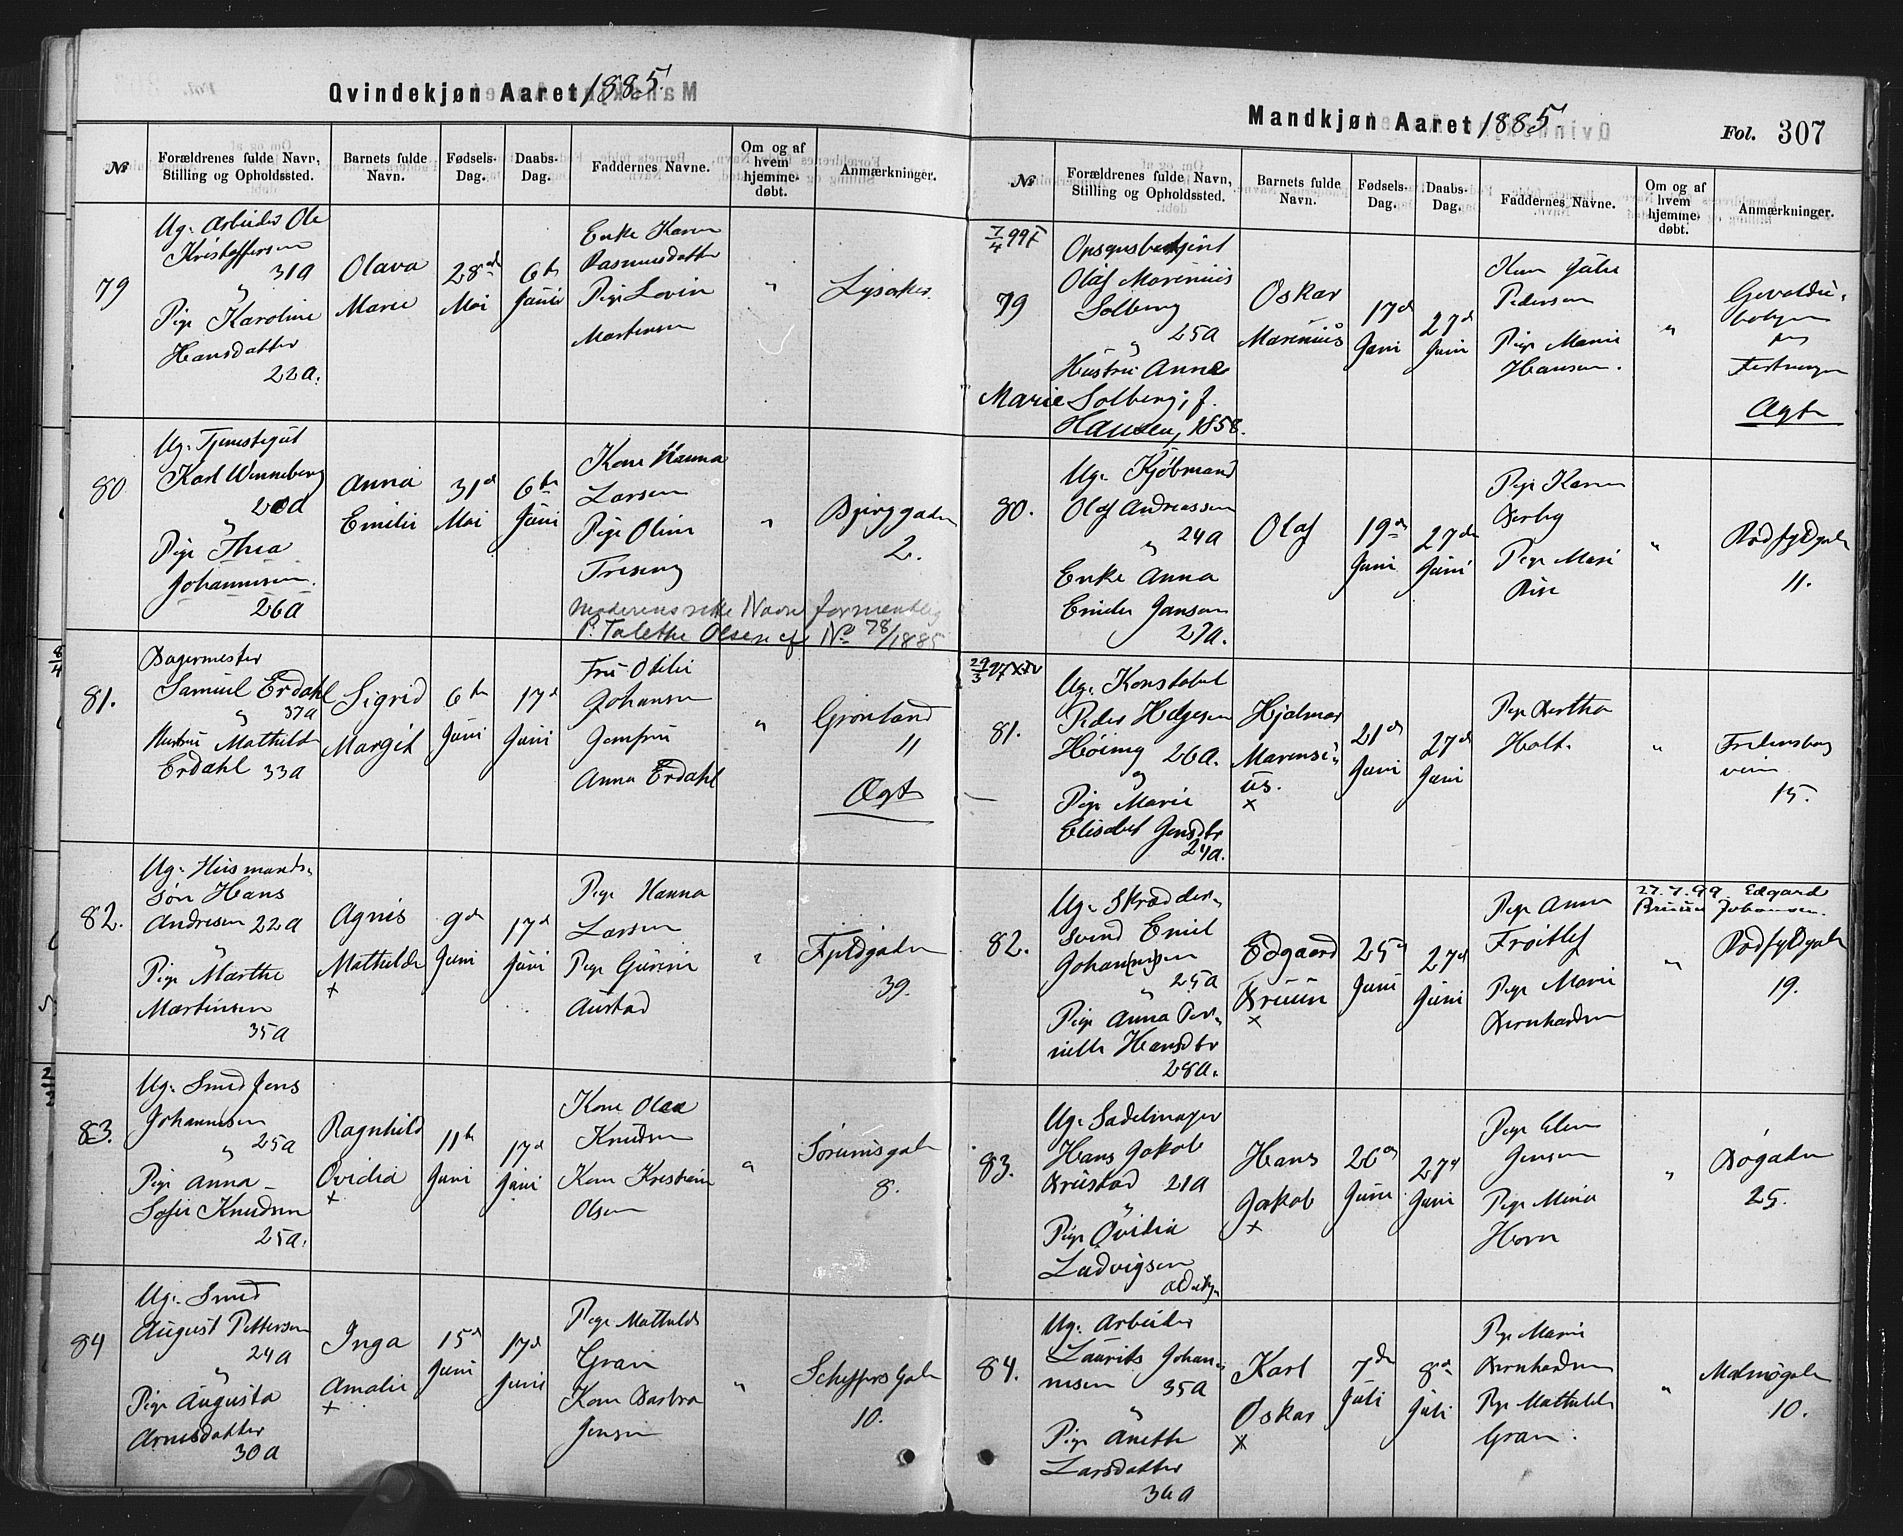 Qvindekjøn Aaret 1885.
№
Forældrenes fulde Navn, Stilling og Opholdssted.
Barnets fulde Navn.
Fødsels-Dag.
Daabs-Dag.
Faddernes Navne.
Om og af hvem hjemme-døbt.
Anmærkninger.
79
Ug. Arbeider Ole
Kristoffersen
31 A
"
Pige Karoline
Hansdatter
22 A.
Olava
Marie
28de
Mai
6te
Juni
Enke Karen
Rasmusdatter
Pige Lovin
Martensen
"
Lysaker.
80
Ug. Tjenestegut
Karl Wenneberg
20 A
"
Pige Thea
Johannesen.
26 A
Anna
Emilie
31d
Mai
6te
Juni
Kone Hanna
Larsen
Pige Oline
"
Bjerggaden
2.
Moderens rette Navn formentlig
P. Talette Olsen cf. No 78/1885
8/4
81.
Bagermester
Samuel Erdahl
37 A
"
Hustru Mathilde
Erdahl 33 A
Sigrid
Margit
6te
Juni
17d
Juni
Fru Otilie
Johansen
Jomfru
Anna Erdahl
"
Grønland
11
Ægte
82.
Ug. Husmands-
søn Hans
Andresen 22 A
"
Pige Marthe
Martinsen
35 A
Agnes
Mathilde
x
9de
Juni
17d
Juni
Pige Hanna
Larsen
Pige Gurine
Austad
"
Fjeldgaden
39.
83.
Ug. Smed Jens
Johannesen
25 A
"
Pige Anna
Sofie Knudsen
25 A.
Ragnhild
Ovidia
x
11te
Juni
17d
Juni
Kone Olea
Knudsen
Kone Kristine
Olsen
"
Sørumsgaden
8.
84
Ug. Smed
August Pettersen
24 A
"
Pige Augusta
Arnesdatter
30 A
Inga
Amalie
x
15d
Juni
17d
Juni
Pige Mathilde
Gran
Kone Barbra
Jensen
"
Scheffers Gade
10.
Mandkjøn Aaret 1885
Fol. 307
№
Forældrenes fulde Navn, Stilling og Opholdssted.
Barnets fulde Navn.
Fødsels-Dag.
Daabs-Dag.
Faddernes Navne.
Om og af hvem hjemme-døbt.
Anmærkninger.
7/4 99 I
79
Opsynsbetjent
Olaf Marenius
Solberg
25 A
"
Hustru Anne
Marie Solberg, f.
Hansen, 1858.
Oskar
Marenius
17d
Juni
27d
Juni
Kone Julie
Pedersen
Pige Marie
Hansen.
"
paa
Fæstningen
Ægte
80.
Ug. Kjøbmand
Olaf Andreassen
24 A
"
Enke Anna
Emilie Jansen
27 A.
Olaf
19de
Juni
27de
Juni
Pige Karen
Berby
Pige Mari
"
Rødfyldgaden
11.
29/3 97
81.
Ug. Konstabel
Peder Helgesen
Høiung 26 A.
og
Pige Marie
Elisabet Jensdtr
24 A.
Hjalmar
Marensi-
us.
x
21de
Juni
27d
Juni
Pige Bertha
Holt.
"
Fredensborg
veien
15.
82.
Ug. Skrædder-
svend Emil
Johan(ne)sen
25 A
"
Pige Anna Per-
nille Hansdtr
28 A.
Edgaard
Bruun
x
25d
Juni
27d
Juni
Pige Anna
Froitlef
Pige Marie
Bernhardsen
"
27.7.99. Edgard
Bruun Johansen.
Rødfyldgaden
19.
83.
Ug. Sadelmager
Hans Jakob
Brustad 21 A
"
Pige Ovidia
Ludvigsen
Hans
Jakob
x
26de
Juni
27d
Juni
Pige Elen
Jensen
Pige Mina
Horn
"
Bøgaden
25.
84.
Ug. Arbeider
Laurits Johan-
nesen 35 A
"
Pige Anette
Larsdatter
Karl
Oskar
x
7de
Juli
8de
Juli
Pige Marie
Bernhardsen
Pige Mathilde
Gran.
"
Malmøgaden
10.